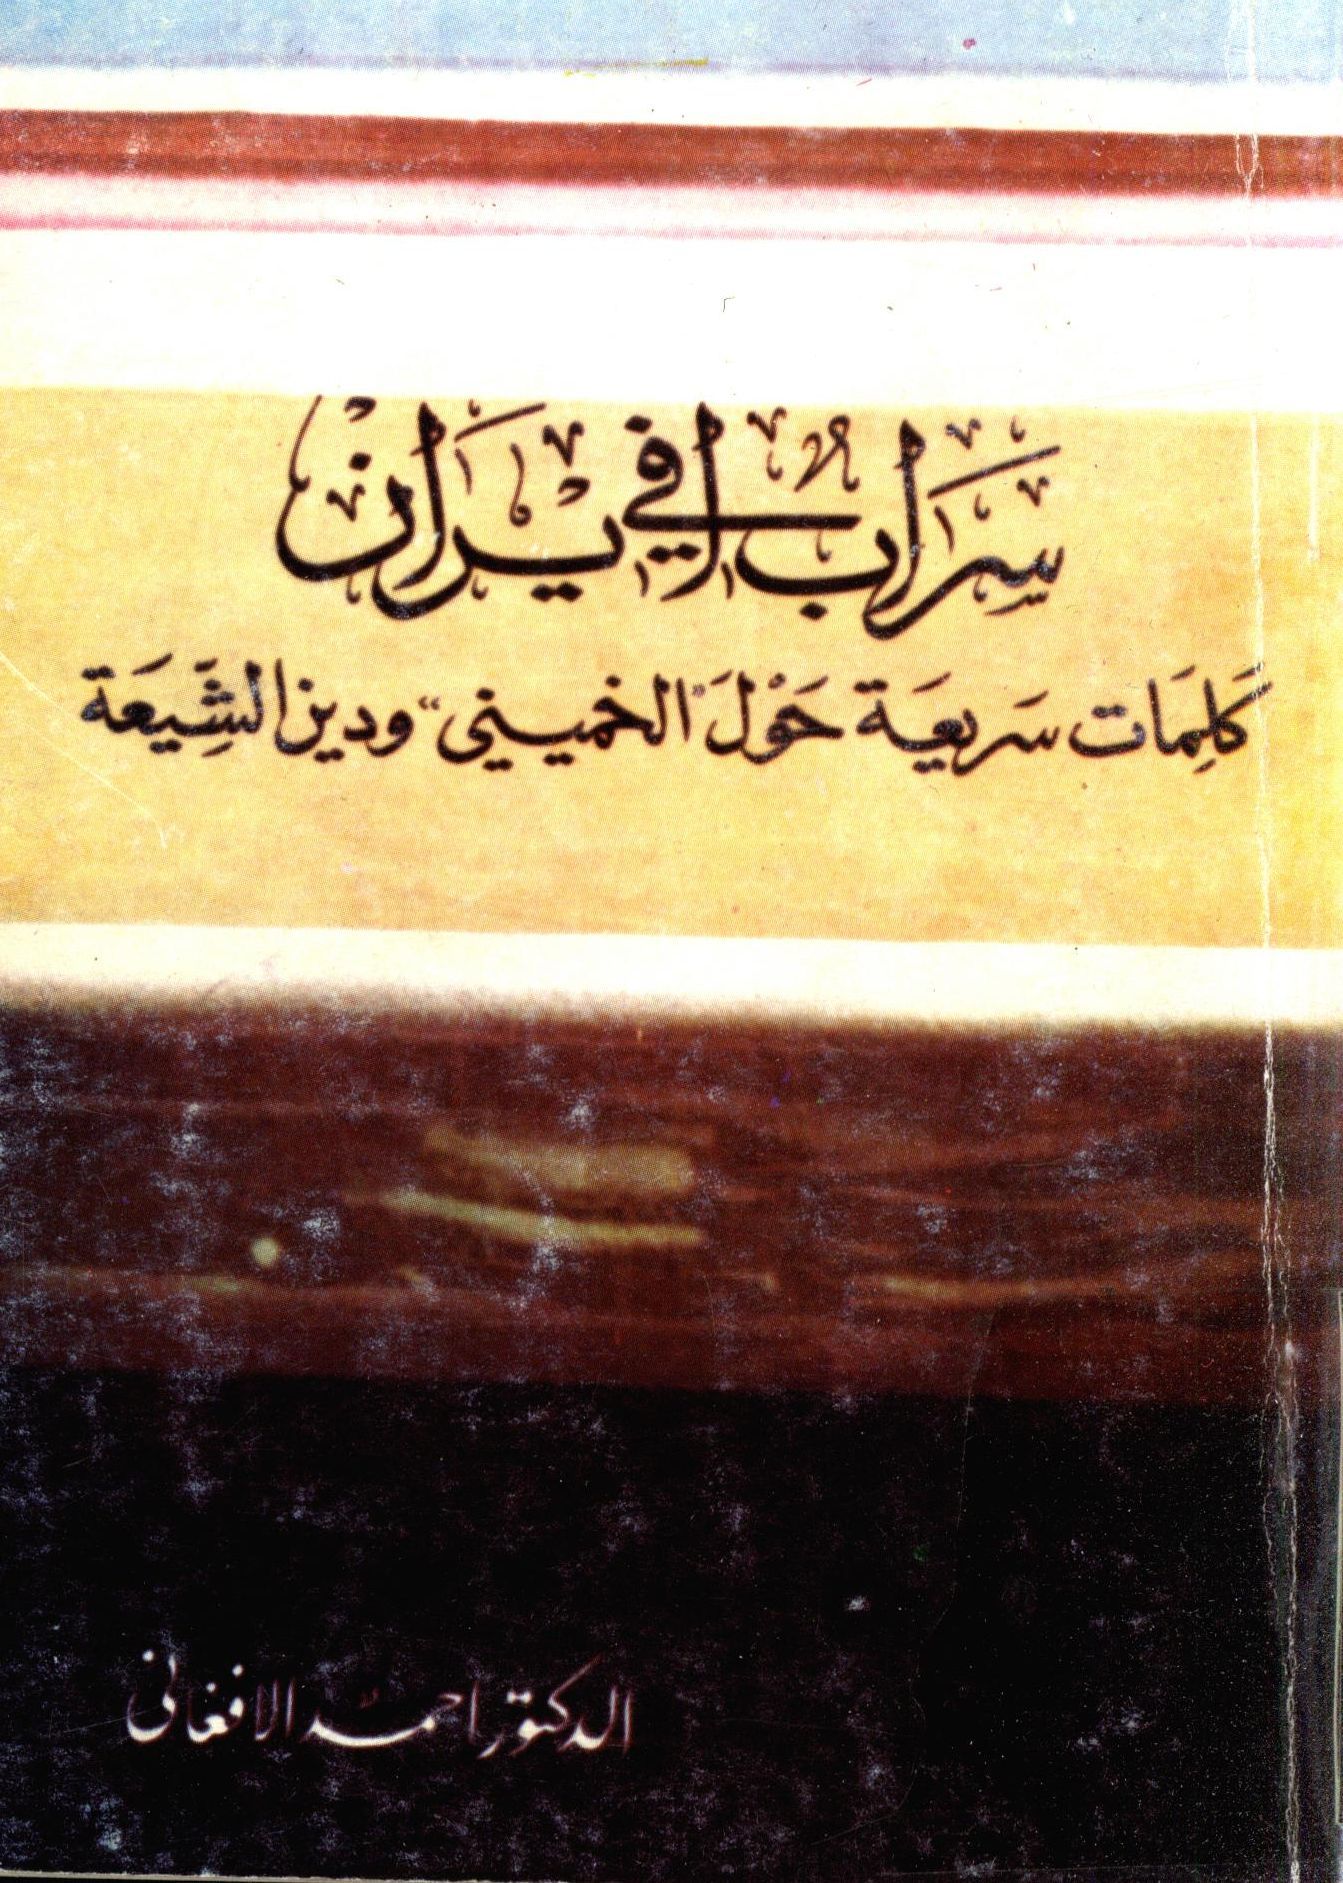 سَرَابٌ في إيرَان
كَلِمَات سَريعَة حَوْلَ "الخميني" ودين الشِّيعَة
الدكتور احمد الافغاني